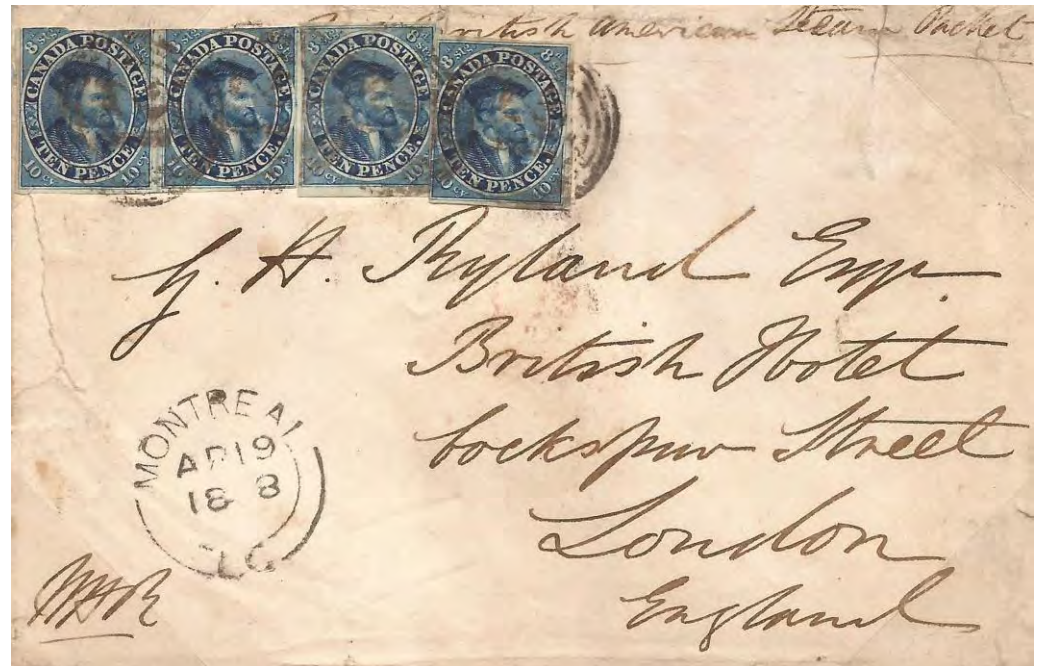 British American Steam Packet
8 stg. 8 stg. CANADA POSTAGE TEN PENCE. 10 cy. 10 cy.
8 stg. 8 stg. CANADA POSTAGE TEN PENCE. 10 cy. 10 cy.
8 stg. 8 stg. CANADA POSTAGE TEN PENCE. 10 cy. 10 cy.
8 stg. 8 stg. CANADA POSTAGE TEN PENCE. 10 cy. 10 cy.
G. H. Ryland Esqr.
British Hotel
Cockspur Street
London
England
MONTREAL
AP 19
18 8
L.C